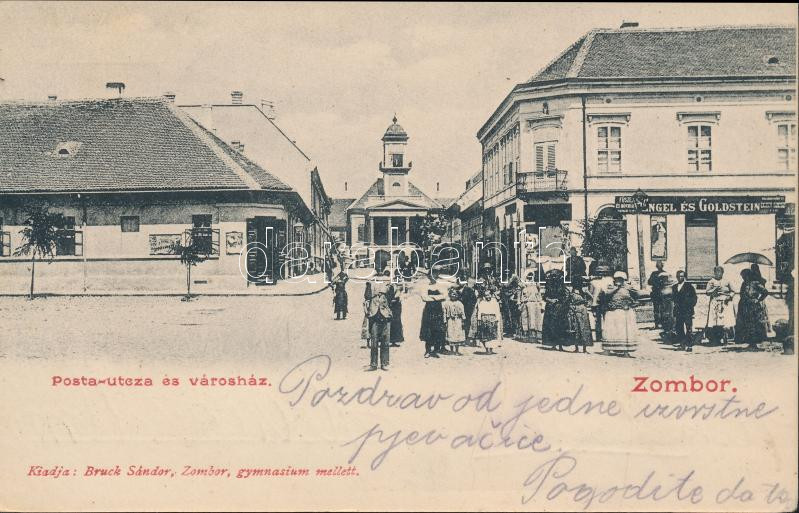 ENGEL ÉS GOLDSTEIN
Posta-utcza és városház.
Zombor.
Pozdrav od jedne izvrstne
pjevačice.
Pogodite da to
Kiadja: Bruck Sándor, Zombor, gymnasium mellett.
darabanth